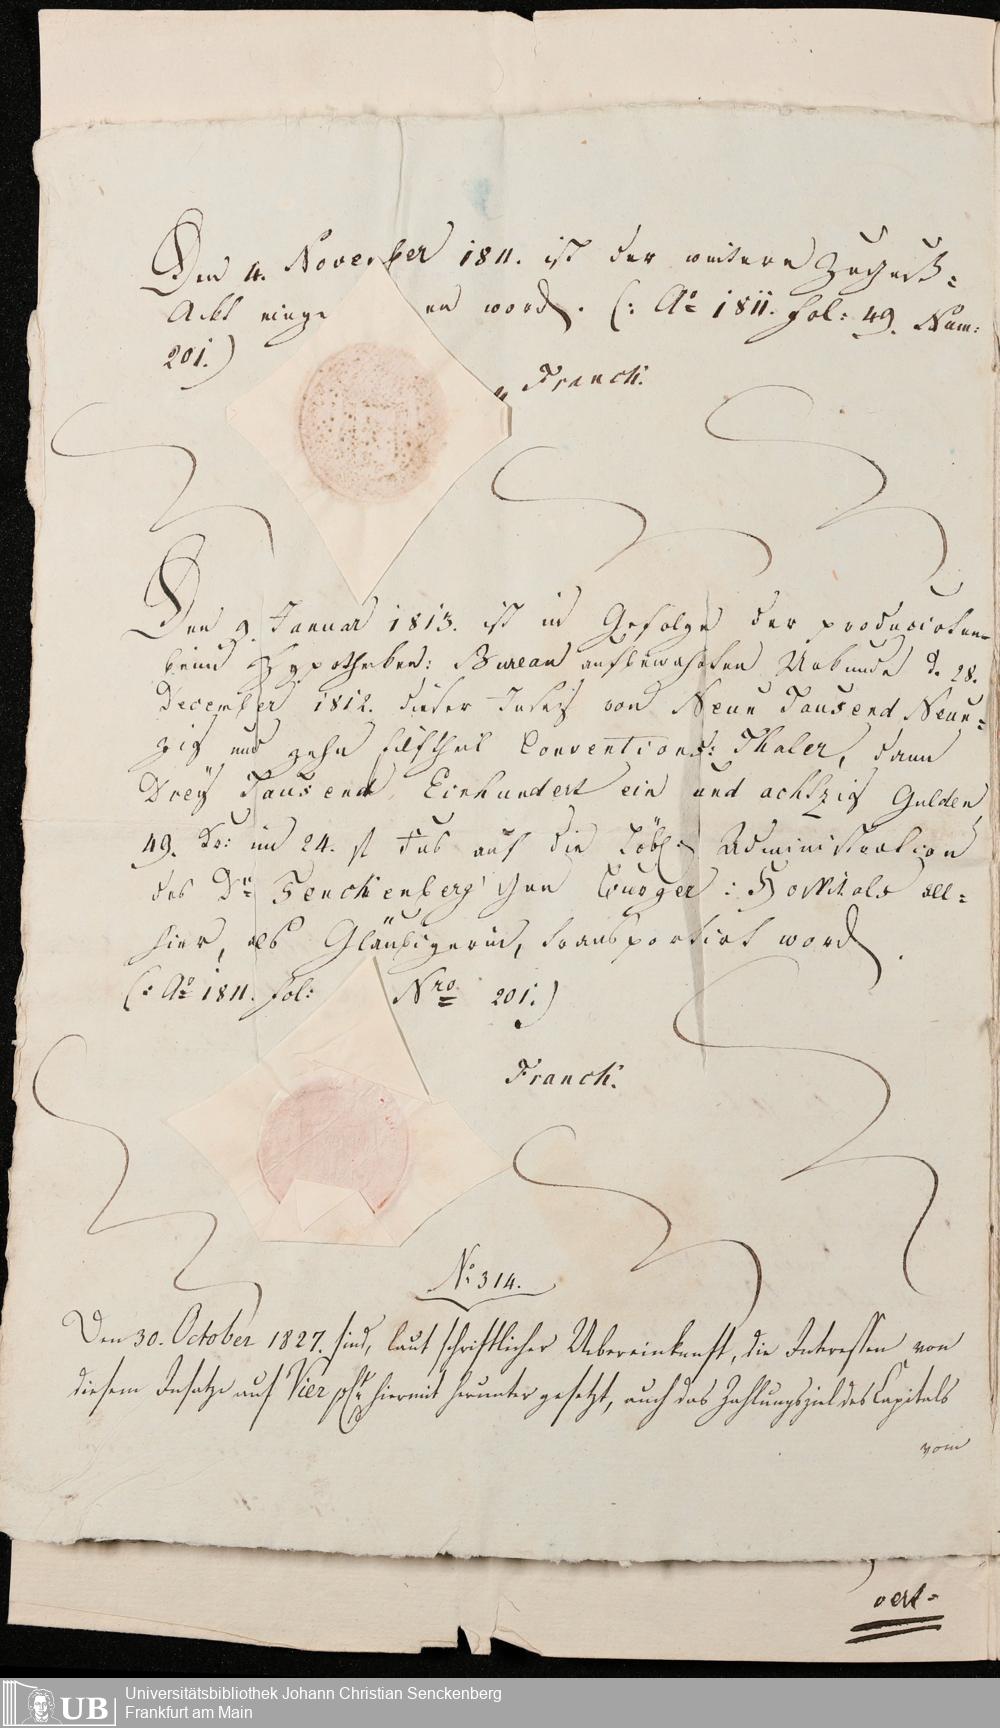 Den 4. November 1811. ist der weitere
Act einge en word. (: Ao 1811. fol: 49. Num:
201.)
Franck.
Den 9. Januar 1813. ist in Gefolge der producirten
beim Hypotheken: Bureau aufbewahrten Urkunde d. 28.
December 1812. dieser Insatz von Neun Tausend Neun-
zig und zehn Conventions: Thaler, dann
Dreÿ Tausend Einhundert ein und achtzig Gulden
49. Kr: im 24. fl Fus auf die Löbl. Administration
des Dr Senckenbergischen Burger: Hospitals all-
hier, als Gläubigerin, transportirt word.
(: Ao 1811. fol: Nro 201.)
Franck.
No. 314.
Den 30. October 1827. sind, laut schriftlicher Uebereinkunft, die Interessen von
diesem Insatze auf Vier hiermit herunter gesetzt, auch das Zahlungsziel des Capitals
vom
vert=
UB
Universitätsbibliothek Johann Christian Senckenberg
Frankfurt am Main